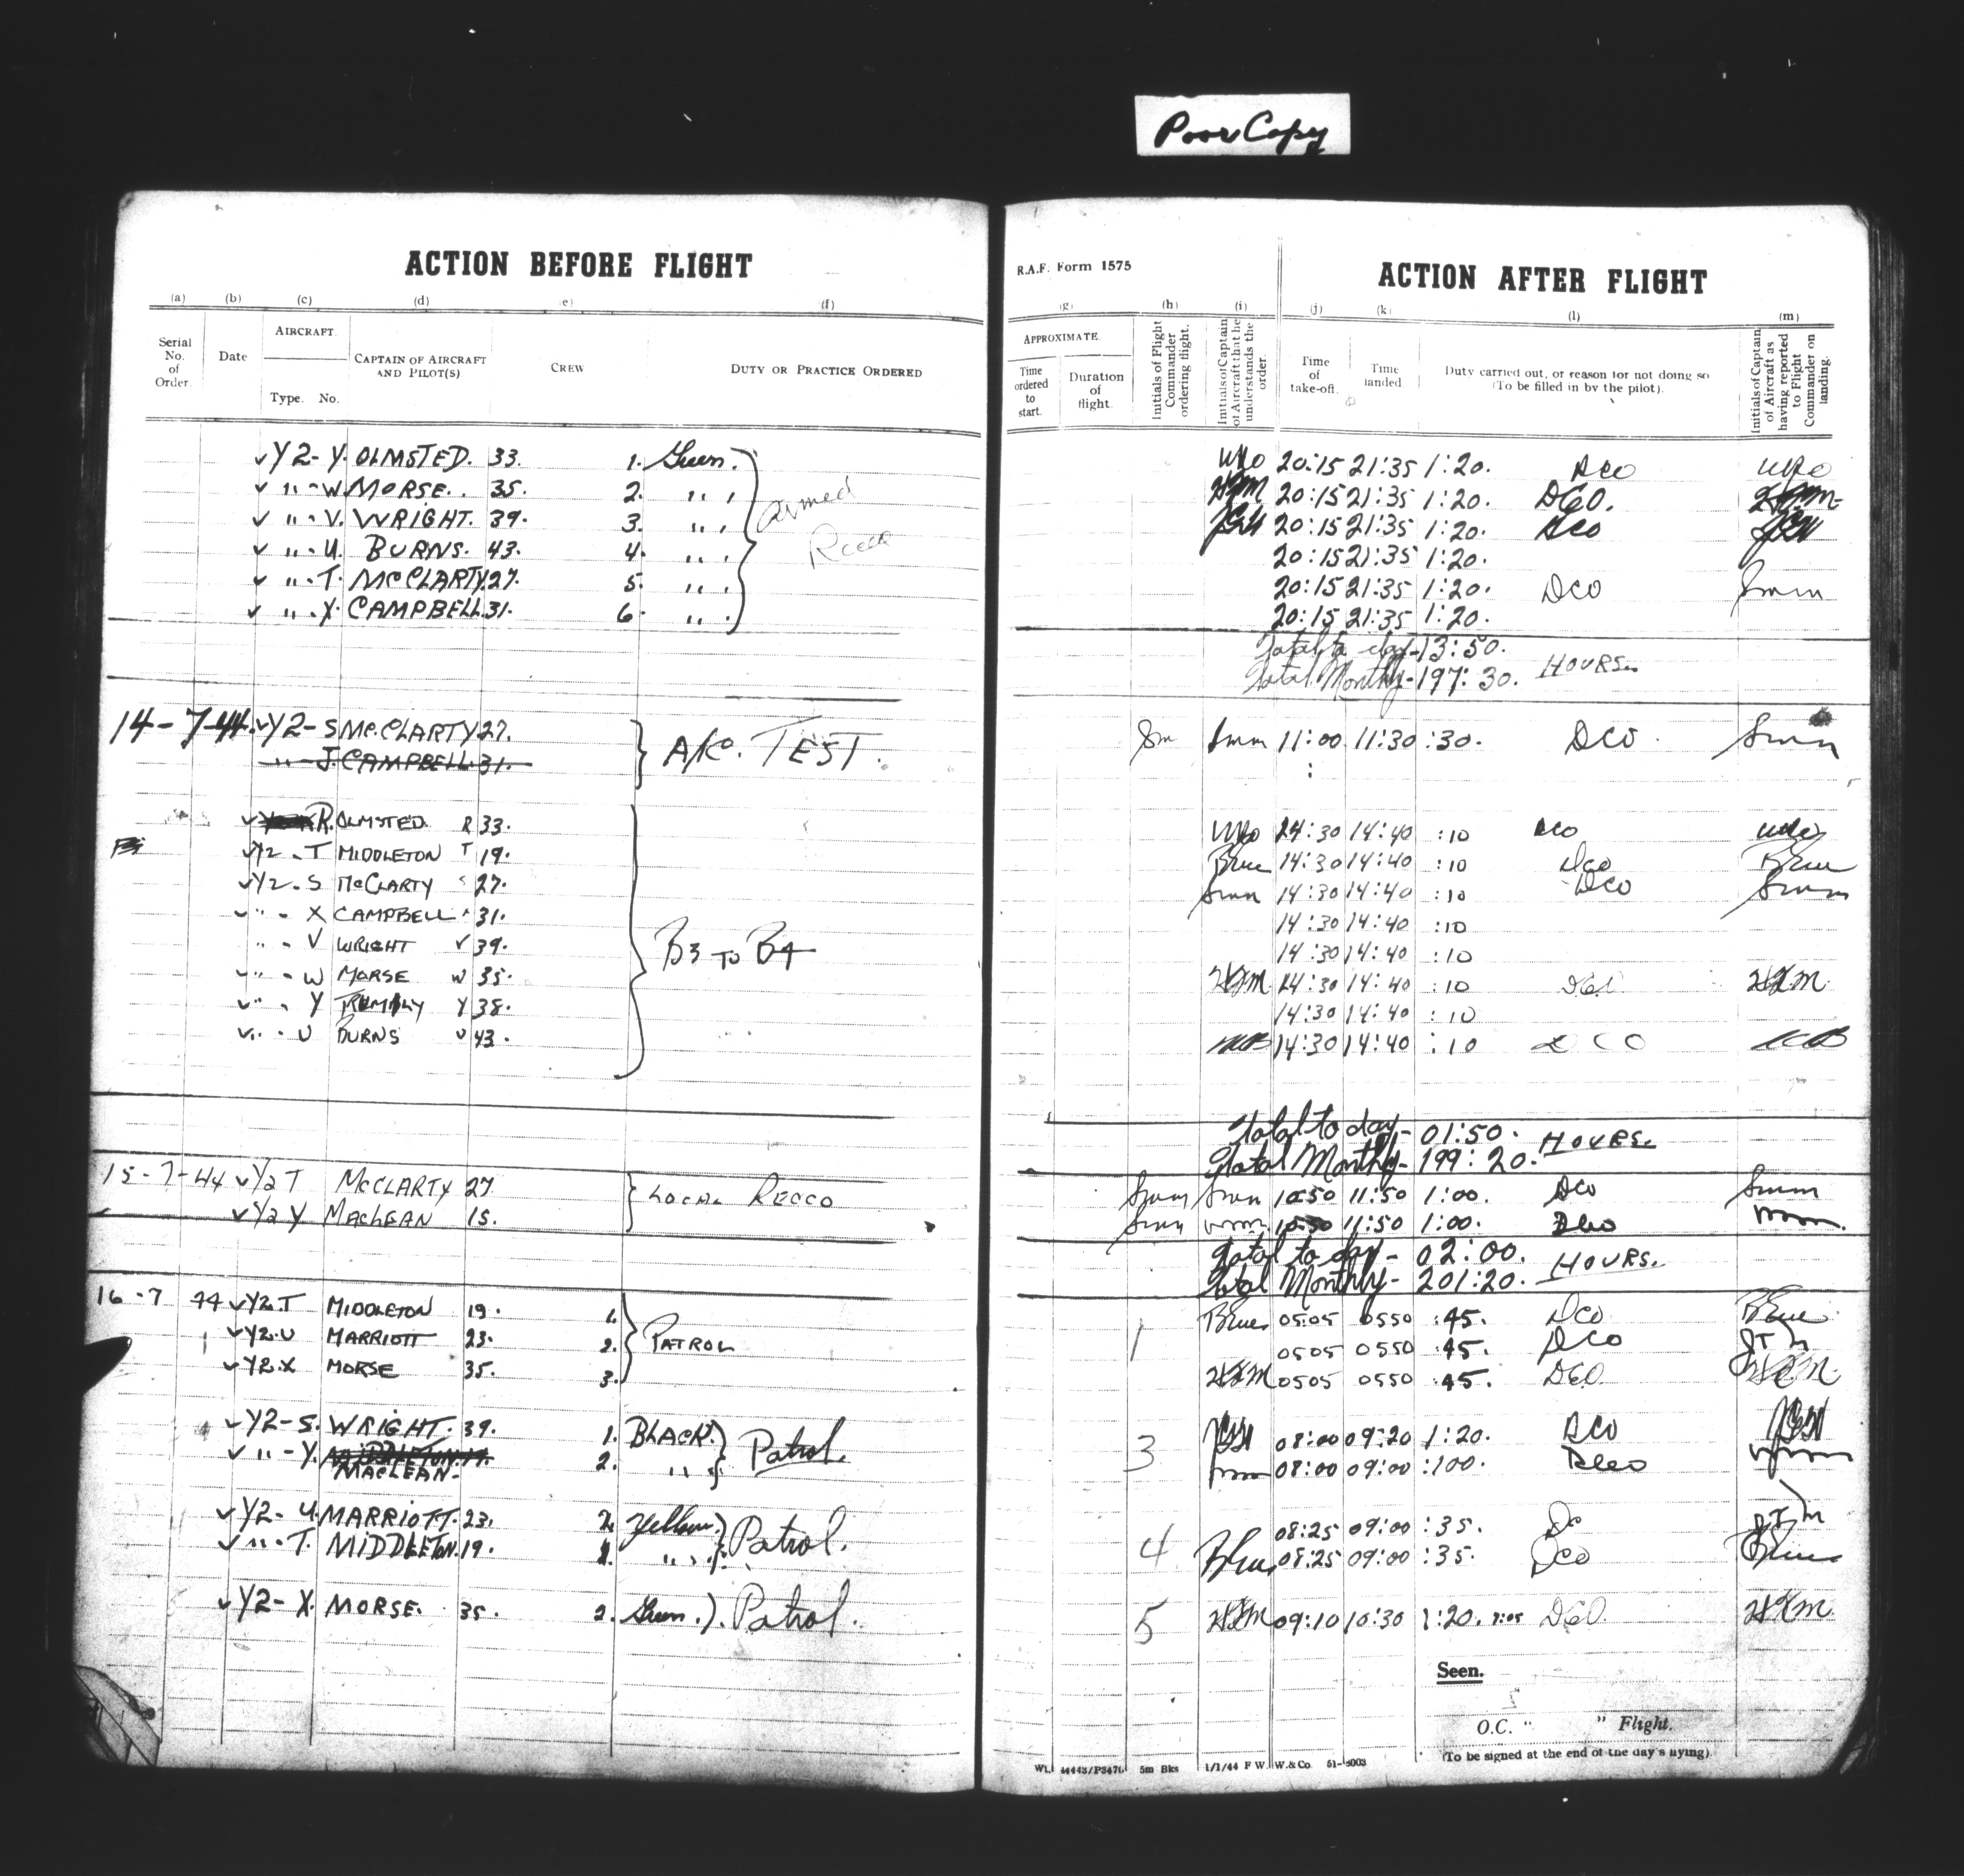 Poor Copy
ACTION BEFORE FLIGHT
R.A.F. Form 1575
ACTION AFTER FLIGHT
(a) (b) (c) (d) (e) (f) (g) (h) (i) (j) (k) (l) (m)
Serial No. of Order.
Date
AIRCRAFT.
Type. No.
CAPTAIN OF AIRCRAFT AND PILOT(S)
CREW
DUTY OR PRACTICE ORDERED
APPROXIMATE.
Time ordered to start.
Duration of flight.
Initials of Flight Commander ordering flight.
Initials of Captain of Aircraft that he understands the order.
Time of take-off.
Time landed
Duty carried out, or reason for not doing so
(To be filled in by the pilot).
Initials of Captain of Aircraft as having reported to Flight Commander on landing.
✓ Y2-Y. OLMSTED. 33. 1. Green. 20:15 21:35 1:20. DCO
✓ " -W. MORSE.. 35. 2. " " 20:15 21:35 1:20. DCO.
✓ " -V. WRIGHT. 39. 3. " " 20:15 21:35 1:20. DCO
✓ " -U. BURNS. 43. 4. " " 20:15 21:35 1:20.
✓ " -T. McCLARTY. 27. 5. " " 20:15 21:35 1:20. DCO
✓ " -X. CAMPBELL. 31. 6. " " 20:15 21:35 1:20.
Armed Recce
Total to day-13:50.
Total Monthly-197:30. HOURS.
14-7-44. ✓ Y2-S McCLARTY 27. A/C. TEST. 11:00 11:30 :30. DCO.
" -J. CAMPBELL. 31.
✓ R. OLMSTED R 33. 14:30 14:40 :10 DCO
✓ Y2-T MIDDLETON T 19. 14:30 14:40 :10 DCO
✓ Y2-S McCLARTY S 27. 14:30 14:40 :10 DCO
✓ " - X CAMPBELL 31. 14:30 14:40 :10
" - V WRIGHT V 39. B3 TO B4 14:30 14:40 :10
✓ " - W MORSE W 35. HKM 14:30 14:40 :10 DCO HKM.
✓ " - Y TRUMBLY Y 38. 14:30 14:40 :10
✓ " - U BURNS U 43. 14:30 14:40 :10 DCO
Total to day- 01:50. HOURS.
Total Monthly- 199:20.
15-7-44 ✓ Y2 T McCLARTY 27. LOCAL RECCO 10:50 11:50 1:00. DCO
✓ Y2 Y MACLEAN 15. 10:50 11:50 1:00. DCO
Total to day- 02:00. HOURS.
Total Monthly- 201:20.
16-7 44 ✓ Y2.T MIDDLETON 19. 1. PATROL 1 0505 0550 :45. DCO
✓ Y2.U MARRIOTT 23. 2. 0505 0550 :45. DCO
✓ Y2.X MORSE 35. 3. HKM 0505 0550 :45. DCO HKM.
✓ Y2-S. WRIGHT. 39. 1. BLACK. Patrol. 3 08:00 09:20 1:20. DCO
✓ " -Y. MIDDLETON. 19. 2. " " 08:00 09:00 :100. DCO
MACLEAN-
✓ Y2-U. MARRIOTT. 23. 2. Yellow. Patrol. 4 08:25 09:00 :35. DCO
✓ " -T. MIDDLETON. 19. 1. " " 08:25 09:00 :35. DCO
✓ Y2-X. MORSE. 35. 2. Green.). Patrol. 5 HKM 09:10 10:30 1:20. DCO HKM.
Seen.
O.C. " " Flight.
(To be signed at the end of the day's flying).
Wt. 44443/P3476 5m Bks 1/1/44 F W. W. & Co. 51-5003